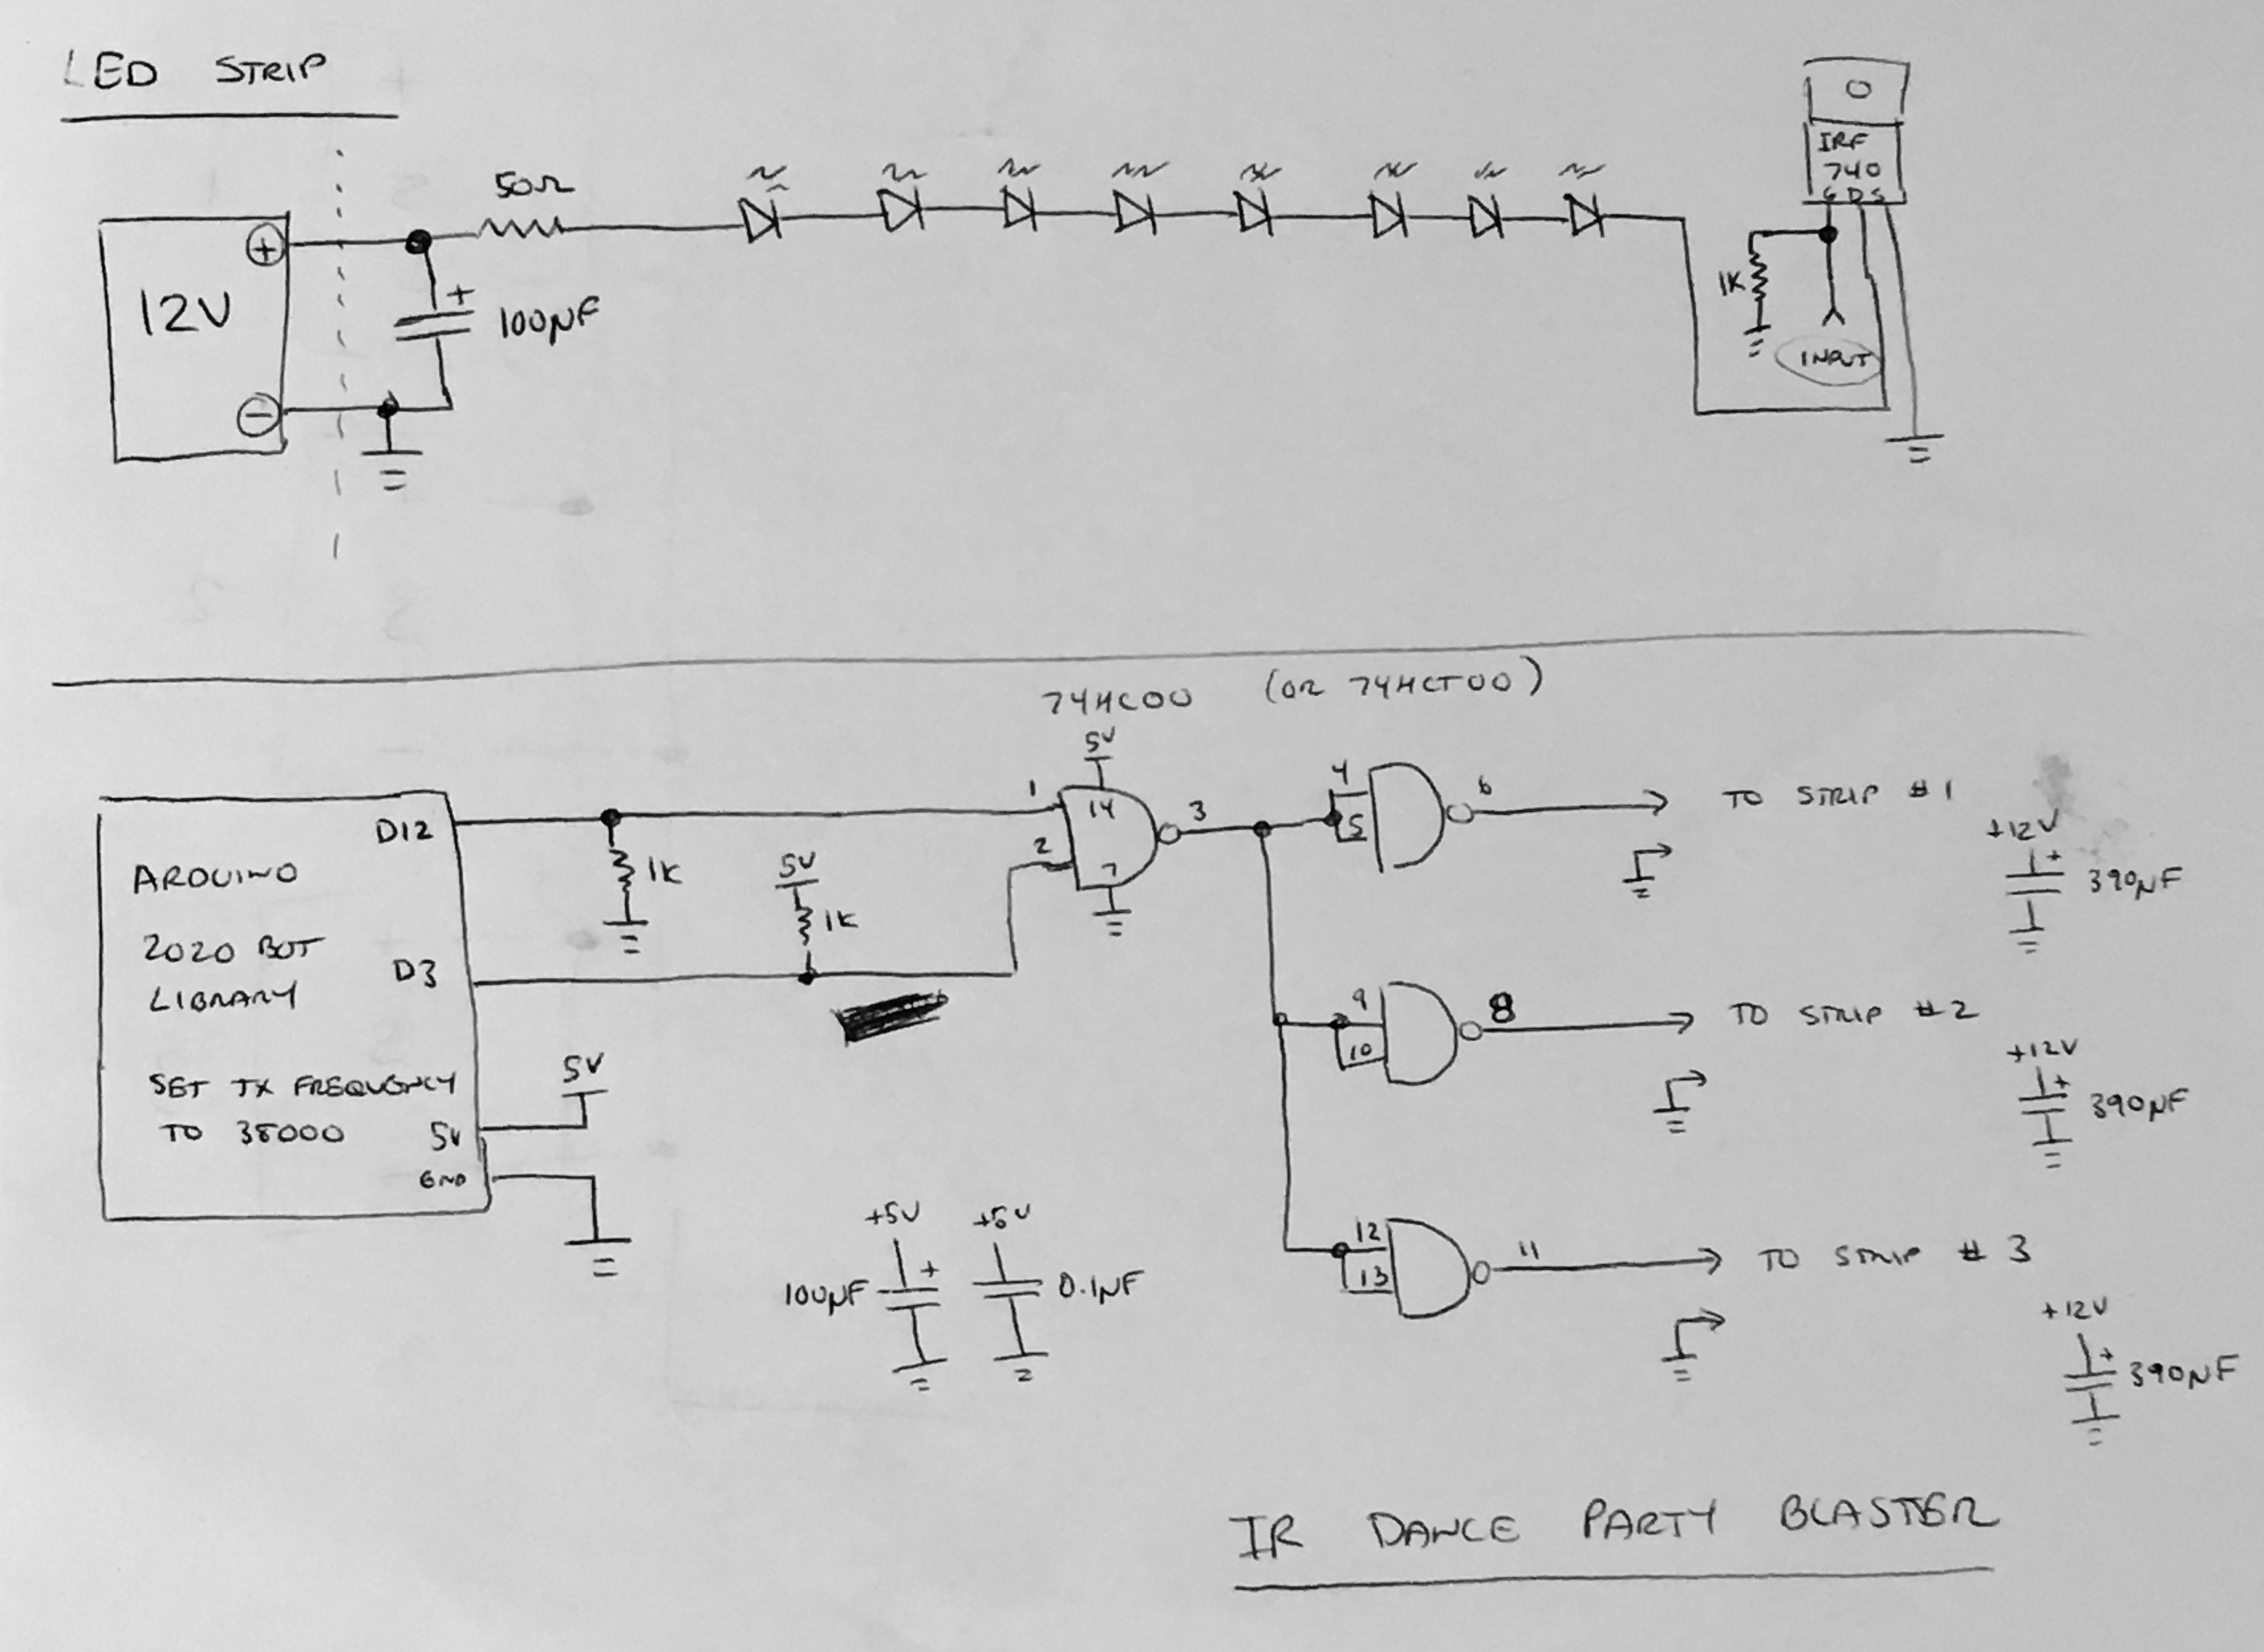 LED STRIP
50Ω
12V
+
-
+
100µF
IRF
740
G D S
1K
INPUT
74HC00 (OR 74HCT00)
ARDUINO
2020 BOT
LIBRARY
SET TX FREQUENCY
TO 38000
D12
D3
5V
GND
5V
1K
5V
1K
1
2
5V
14
7
3
4
5
6
TO STRIP #1
+12V
+
390µF
9
10
8
TO STRIP #2
+12V
+
390µF
12
13
11
TO STRIP #3
+12V
+
390µF
+5V
+
100µF
+5V
0.1µF
IR DANCE PARTY BLASTER